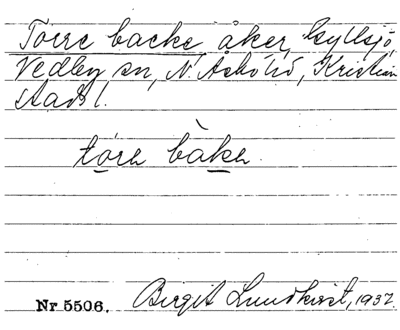 Torre backe åker, Gyllsjö,
Vedby sn, N. Åsbo hd, Kristian
stads l.
tóre bàke
Nr 5506. Birgit Lundkvist, 1937